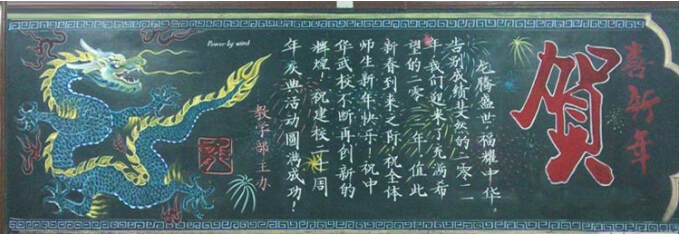 喜新年
贺
龙腾盛世,福耀中华,
告别成绩斐然的二零一一
年我们迎来了充满希
望的二零 年值此
新春到来之际,祝全体
师生新年快乐!祝中
华武校不断再创新的
辉煌!祝建校二十周
年庆典活动圆满成功!
教学部主办
Power by wind